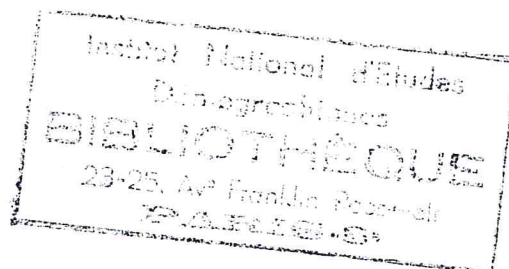 Institut National d'Etudes
Démographiques
BIBLIOTHÈQUE
23-25, Avᵉ Franklin Roosevelt
PARIS-8ᵉ